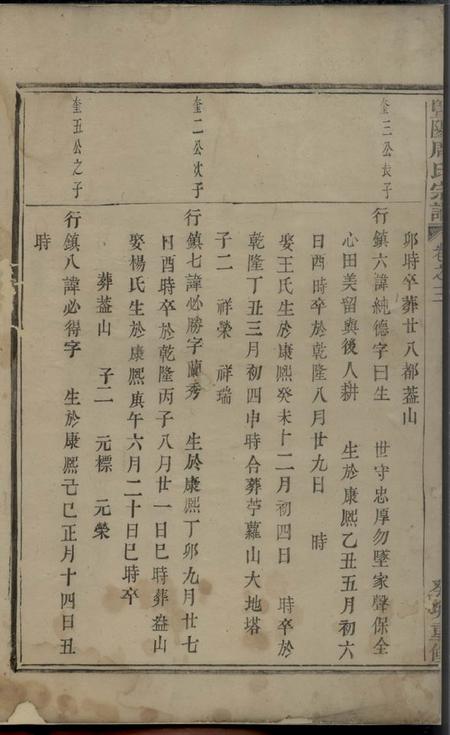 暨陽周氏宗譜
卷之二
卯時卒葬廿八都葢山
奎三公長子
行鎮六諱純德字曰生　世守忠厚勿墜家聲保全
心田美留與後人耕　生於康熙乙丑五月初六
日酉時卒於乾隆八月廿九日　時
娶王氏生於康熙癸未十二月初四日　時卒於
乾隆丁丑三月初四申時合葬苧蘿山大地塔
子二　祥榮　祥瑞
奎二公次子
行鎮七諱必勝字蘭秀　生於康熙丁卯九月廿七
日酉時卒於乾隆丙子八月廿一日巳時葬葢山
娶楊氏生於康熙庚午六月二十日巳時卒
葬葢山　子二　元標　元榮
奎五公之子
行鎮八諱必得字　生於康熙己巳正月十四日丑
時